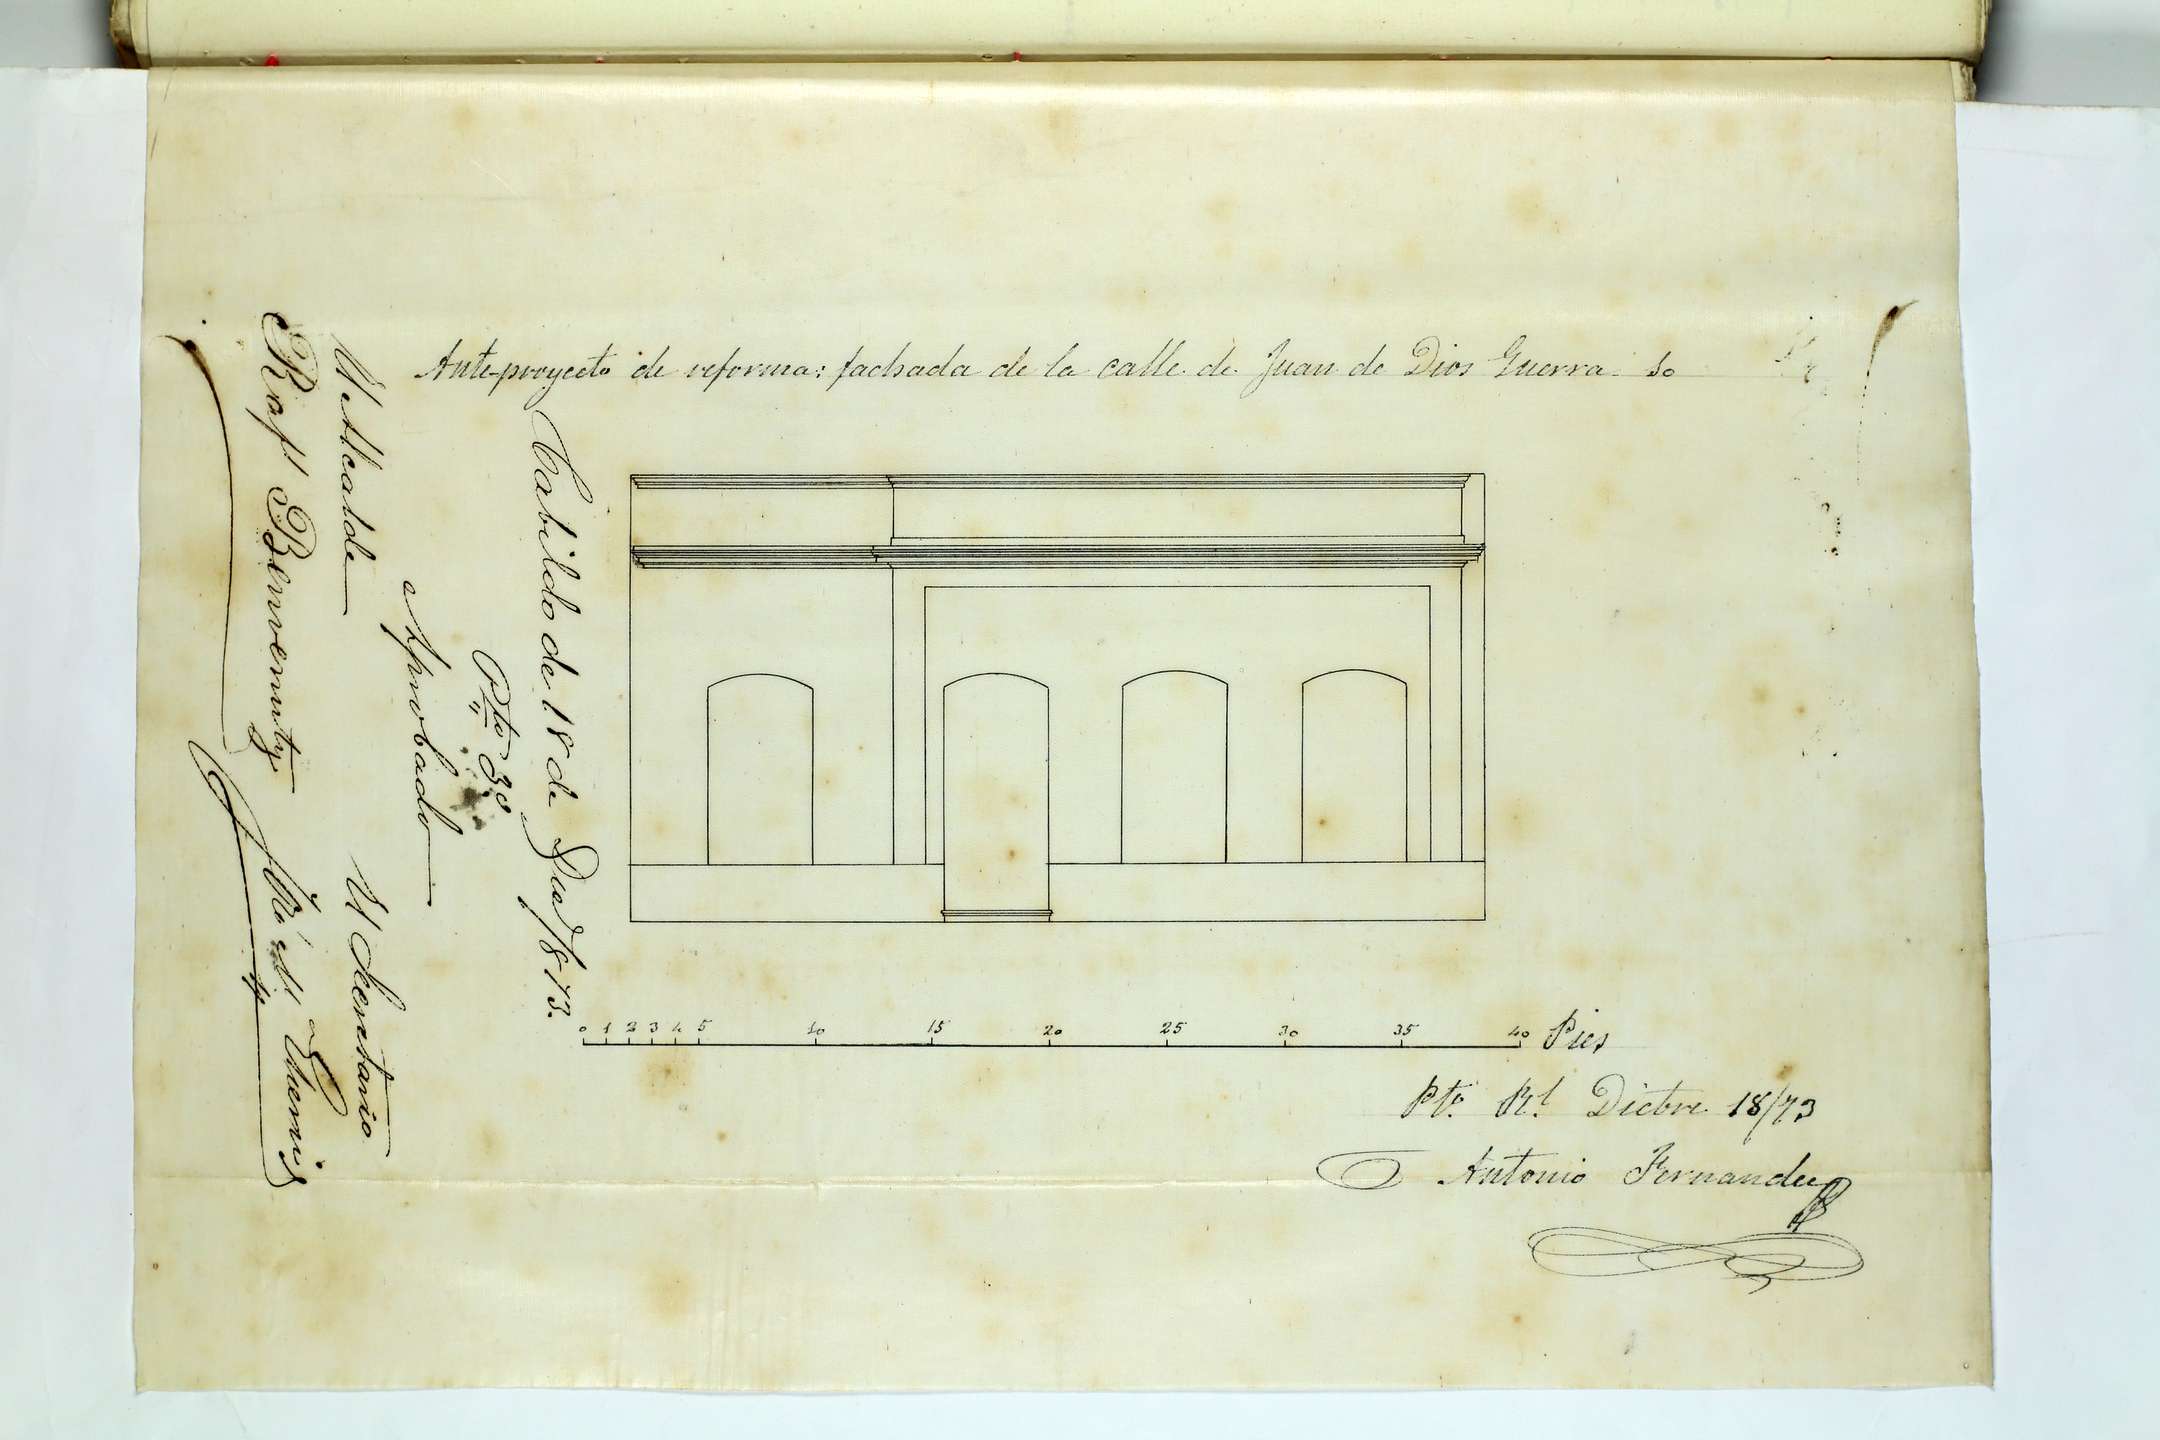 Ante-proyecto de reforma: fachada de la calle de Juan de Dios Guerra. 50
Cabildo de 18 de 1873.
Pto. 3o
Aprobado
El Alcalde
Rafl. Benvenuty
El Secretario
0 1 2 3 4 5 10 15 20 25 30 35 40 Pies
Pto. Rl. Dictbre 18/73
Antonio Fernandez